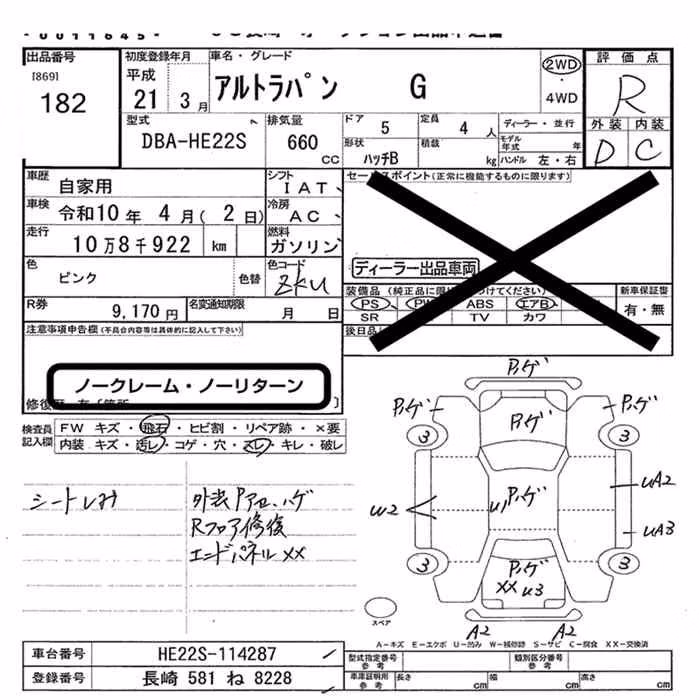 0011645
出品番号
[869]
182
初度登録年月
平成
21 3 月
車名・グレード
アルトラパン G
2WD
・
4WD
評価点
R
外装 内装
D C
型式
DBA-HE22S
排気量
660
CC
ドア 5
定員 4 人
形状 ハッチB
積載 kg
ディーラー・並行
モデル年式 年
ハンドル 左・右
車歴 自家用
シフト IAT
車検 令和10年 4月( 2日)
冷房 AC
走行 10万8千922 km
燃料 ガソリン
色 ピンク 色替
色コード ZKU
R券 9,170円
名変通知期限 月 日
セールスポイント(正常に機能するものに限ります)
ディーラー出品車両
装備品(純正品に限り
つけてください)
PS PW ABS エアB
SR TV カワ
新車保証書
有・無
後日品
注意事項申告欄(不具合内容等は具体的に記入して下さい)
ノークレーム・ノーリターン
検査員記入欄
FW キズ・飛石・ヒビ割・リペア跡・×要
内装 キズ・汚レ・コゲ・穴・スレ・キレ・破レ
シートしみ
外装Pアセ、ハゲ
Rフロア修復
エンドパネルXX
Pハゲ
Pハゲ
Pハゲ
Pハゲ
3 3
U2
U, Pハゲ
UA2
UA3
3 3
Pハゲ
XX U3
スペア
A2 A2
A-キズ E-エクボ U-凹み W-補修跡 S-サビ C-腐食 XX-交換済
車台番号 HE22S-114287
登録番号 長崎 581 ね 8228
型式指定番号 参考
類別区分番号 参考
車庫証明用 参考
長さ cm
幅 cm
高さ cm